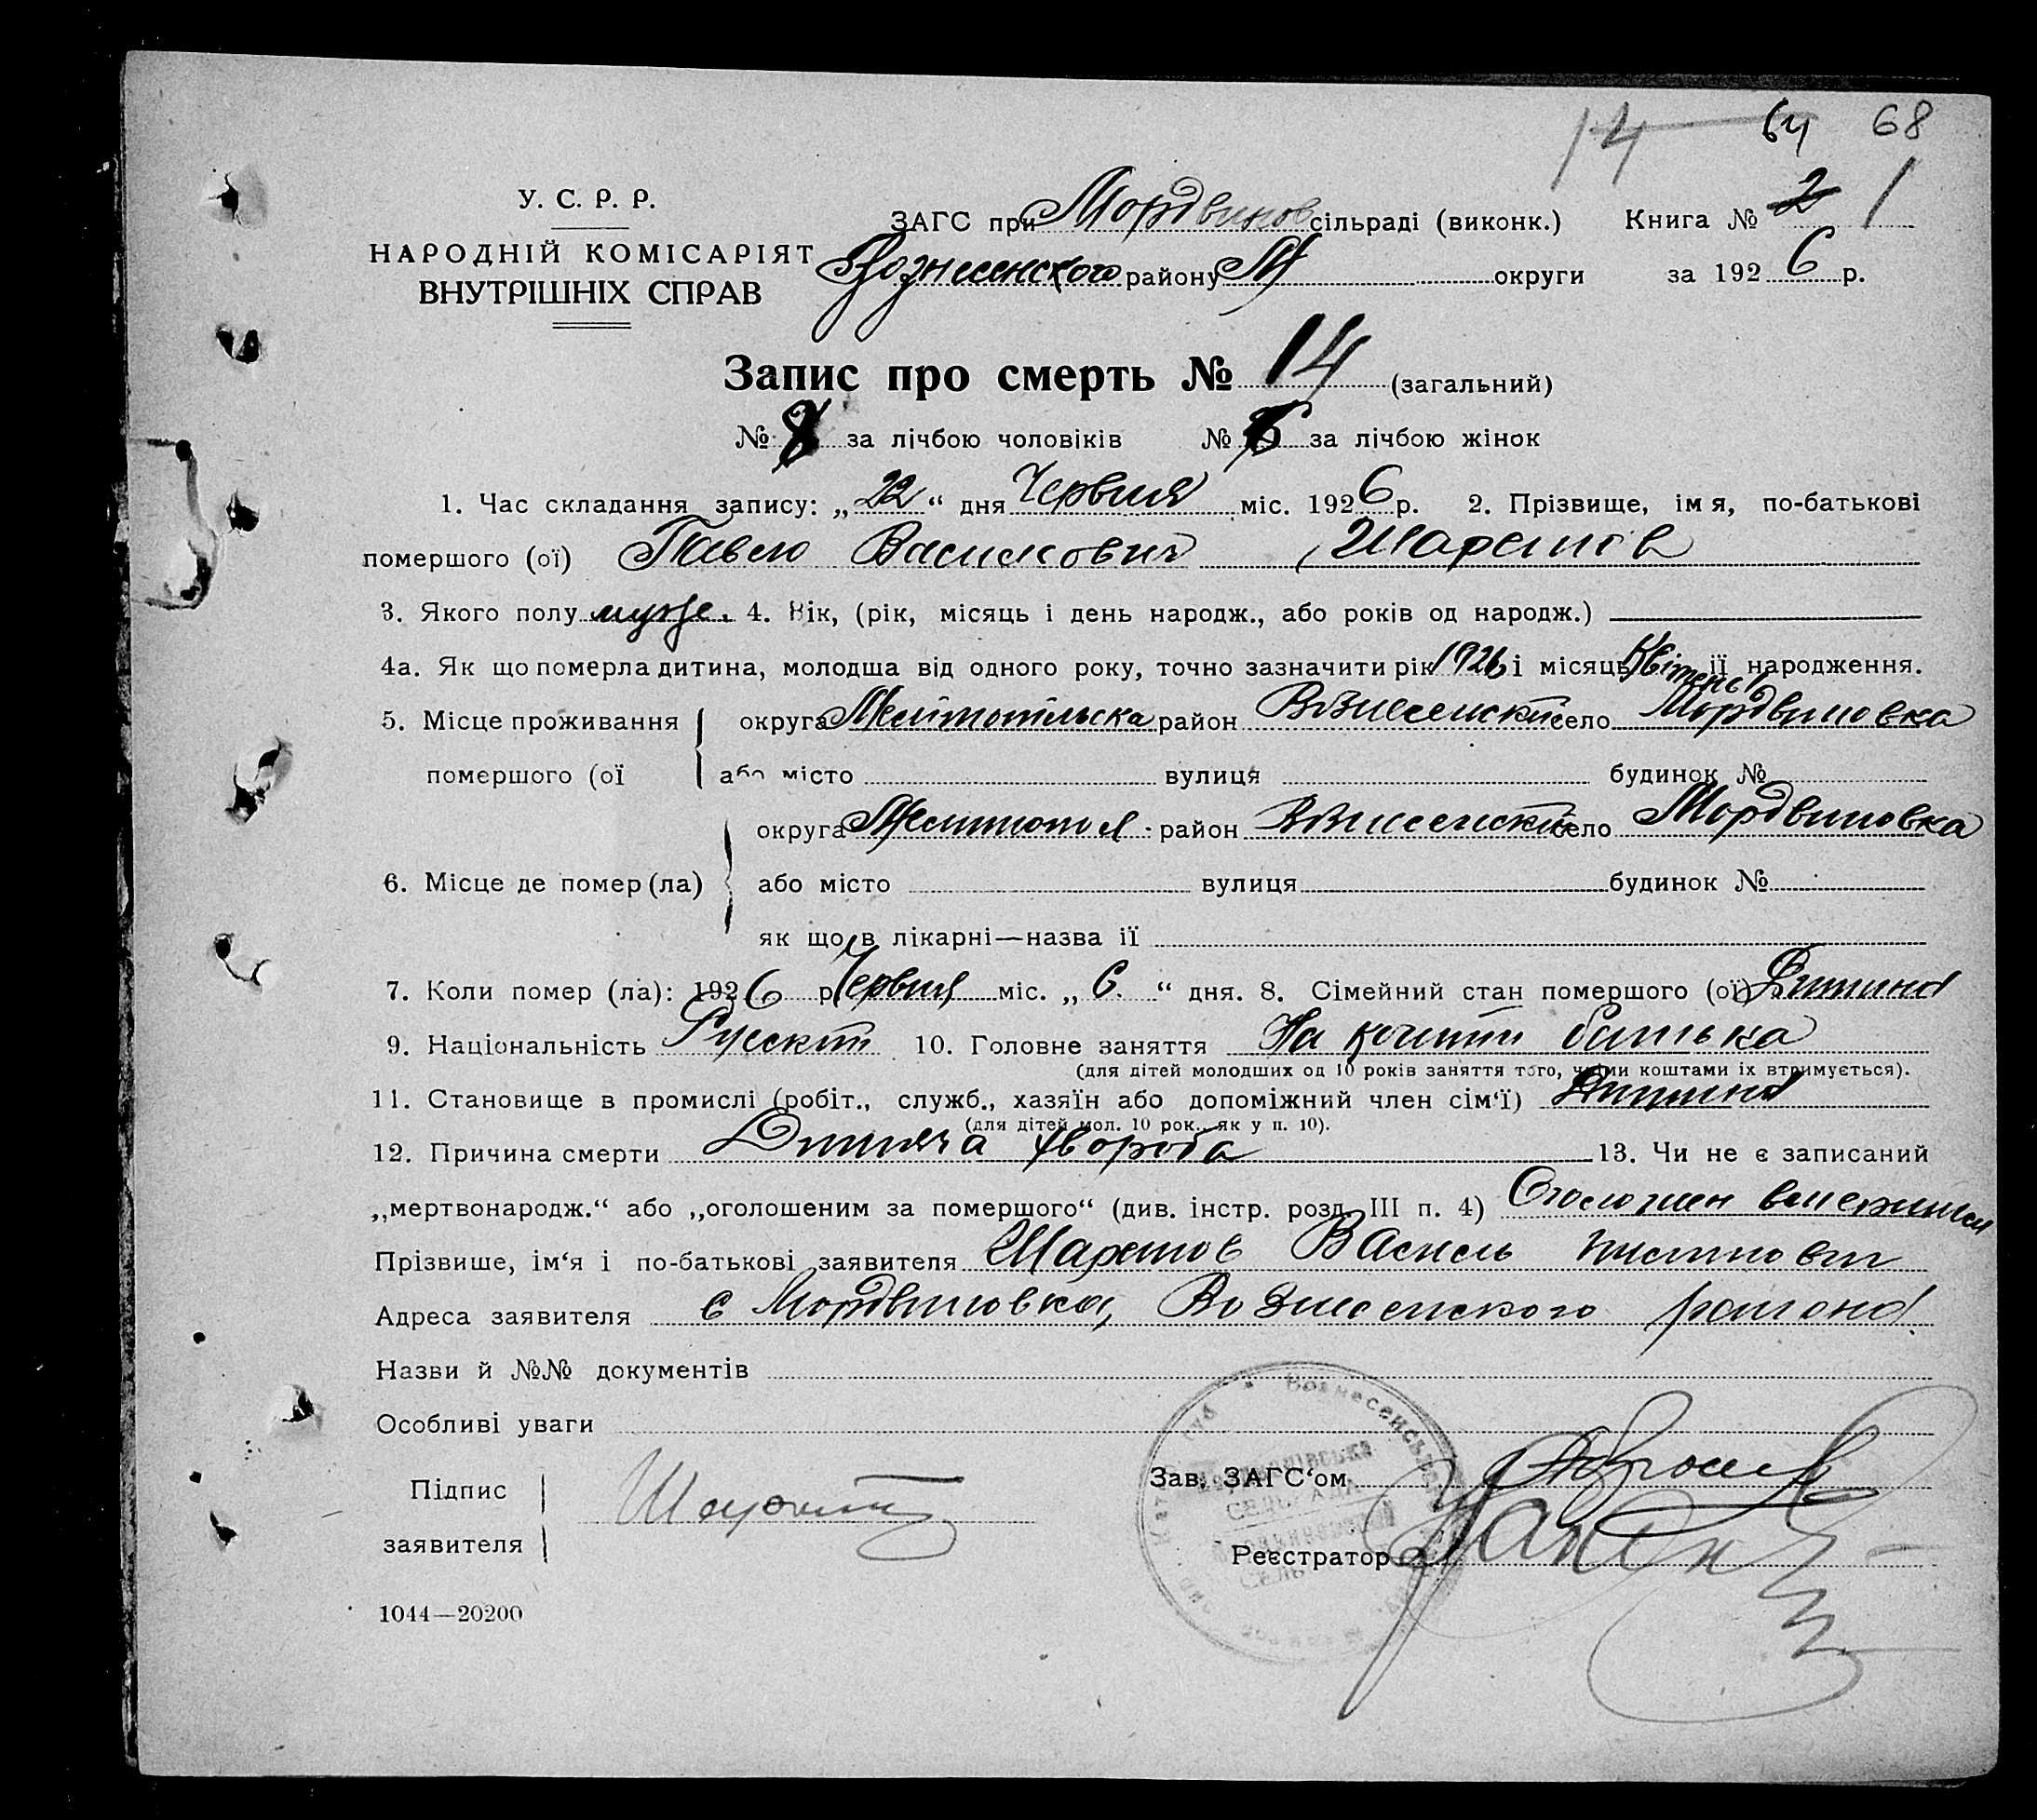 14 64 68
У. С. Р. Р.
НАРОДНІЙ КОМІСАРІЯТ
ВНУТРІШНІХ СПРАВ
ЗАГС при Мордвинов сільраді (виконк.) Книга № 2 1
Вознесенского району М округи за 1926 р.
Запис про смерть № 14 (загальний)
№ 8 за лічбою чоловіків № 6 за лічбою жінок
1. Час складання запису: „22“ дня Червня міс. 1926 р. 2. Прізвище, імя, по-батькові
помершого (ої) Павло Василович
3. Якого полу муже. 4. Вік, (рік, місяць і день народж., або років од народж.)
4а. Як що померла дитина, молодша від одного року, точно зазначити рік 1926 і місяць Квітень її народження.
5. Місце проживання округа Мелітопільска район Вознесенский село Мордвиновка
помершого (ої або місто вулиця будинок №
округа Мелитопол. район Вознесенский село Мордвиновка
6. Місце де помер (ла) або місто вулиця будинок №
як що в лікарні—назва її
7. Коли помер (ла): 1926 р Червня міс. „6.“ дня. 8. Сімейний стан помершого (ої) Дитина
9. Національність Русский 10. Головне заняття На кошти батька
(для дітей молодших од 10 років заняття того, чиїми коштами їх втримується).
11. Становище в промислі (робіт., служб., хазяїн або допоміжний член сім‘ї) Дитина
(для дітей мол. 10 рок., як у п. 10).
12. Причина смерти Дитяча хвороба 13. Чи не є записаний
„мертвонародж.“ або „оголошеним за помершого“ (див. інстр. розд. III п. 4) Оголошен
Прізвише, ім‘я і по-батькові заявителя Василь
Адреса заявителя с Мордвиновка, Вознесенского района
Назви й №№ документів
Особливі уваги
Підпис
заявителя
Зав. ЗАГС‘ом
Реєстратор
1044—20200